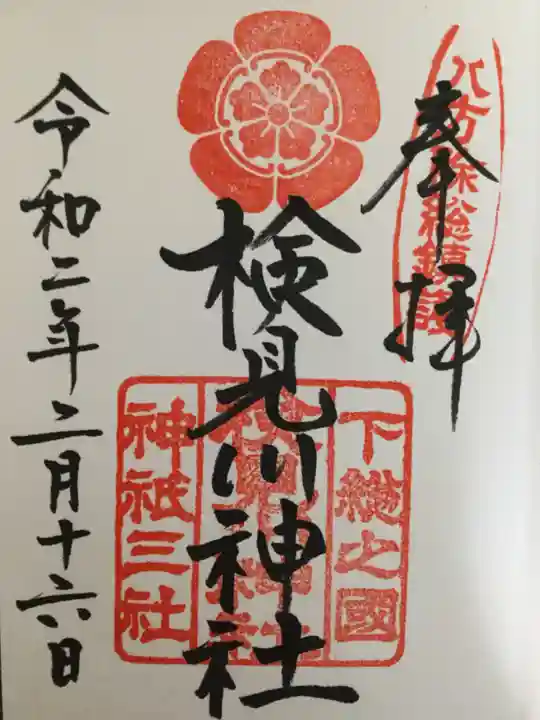 奉拝
八方除総鎮護
検見川神社
下総之國
神祇三社
令和二年二月十六日